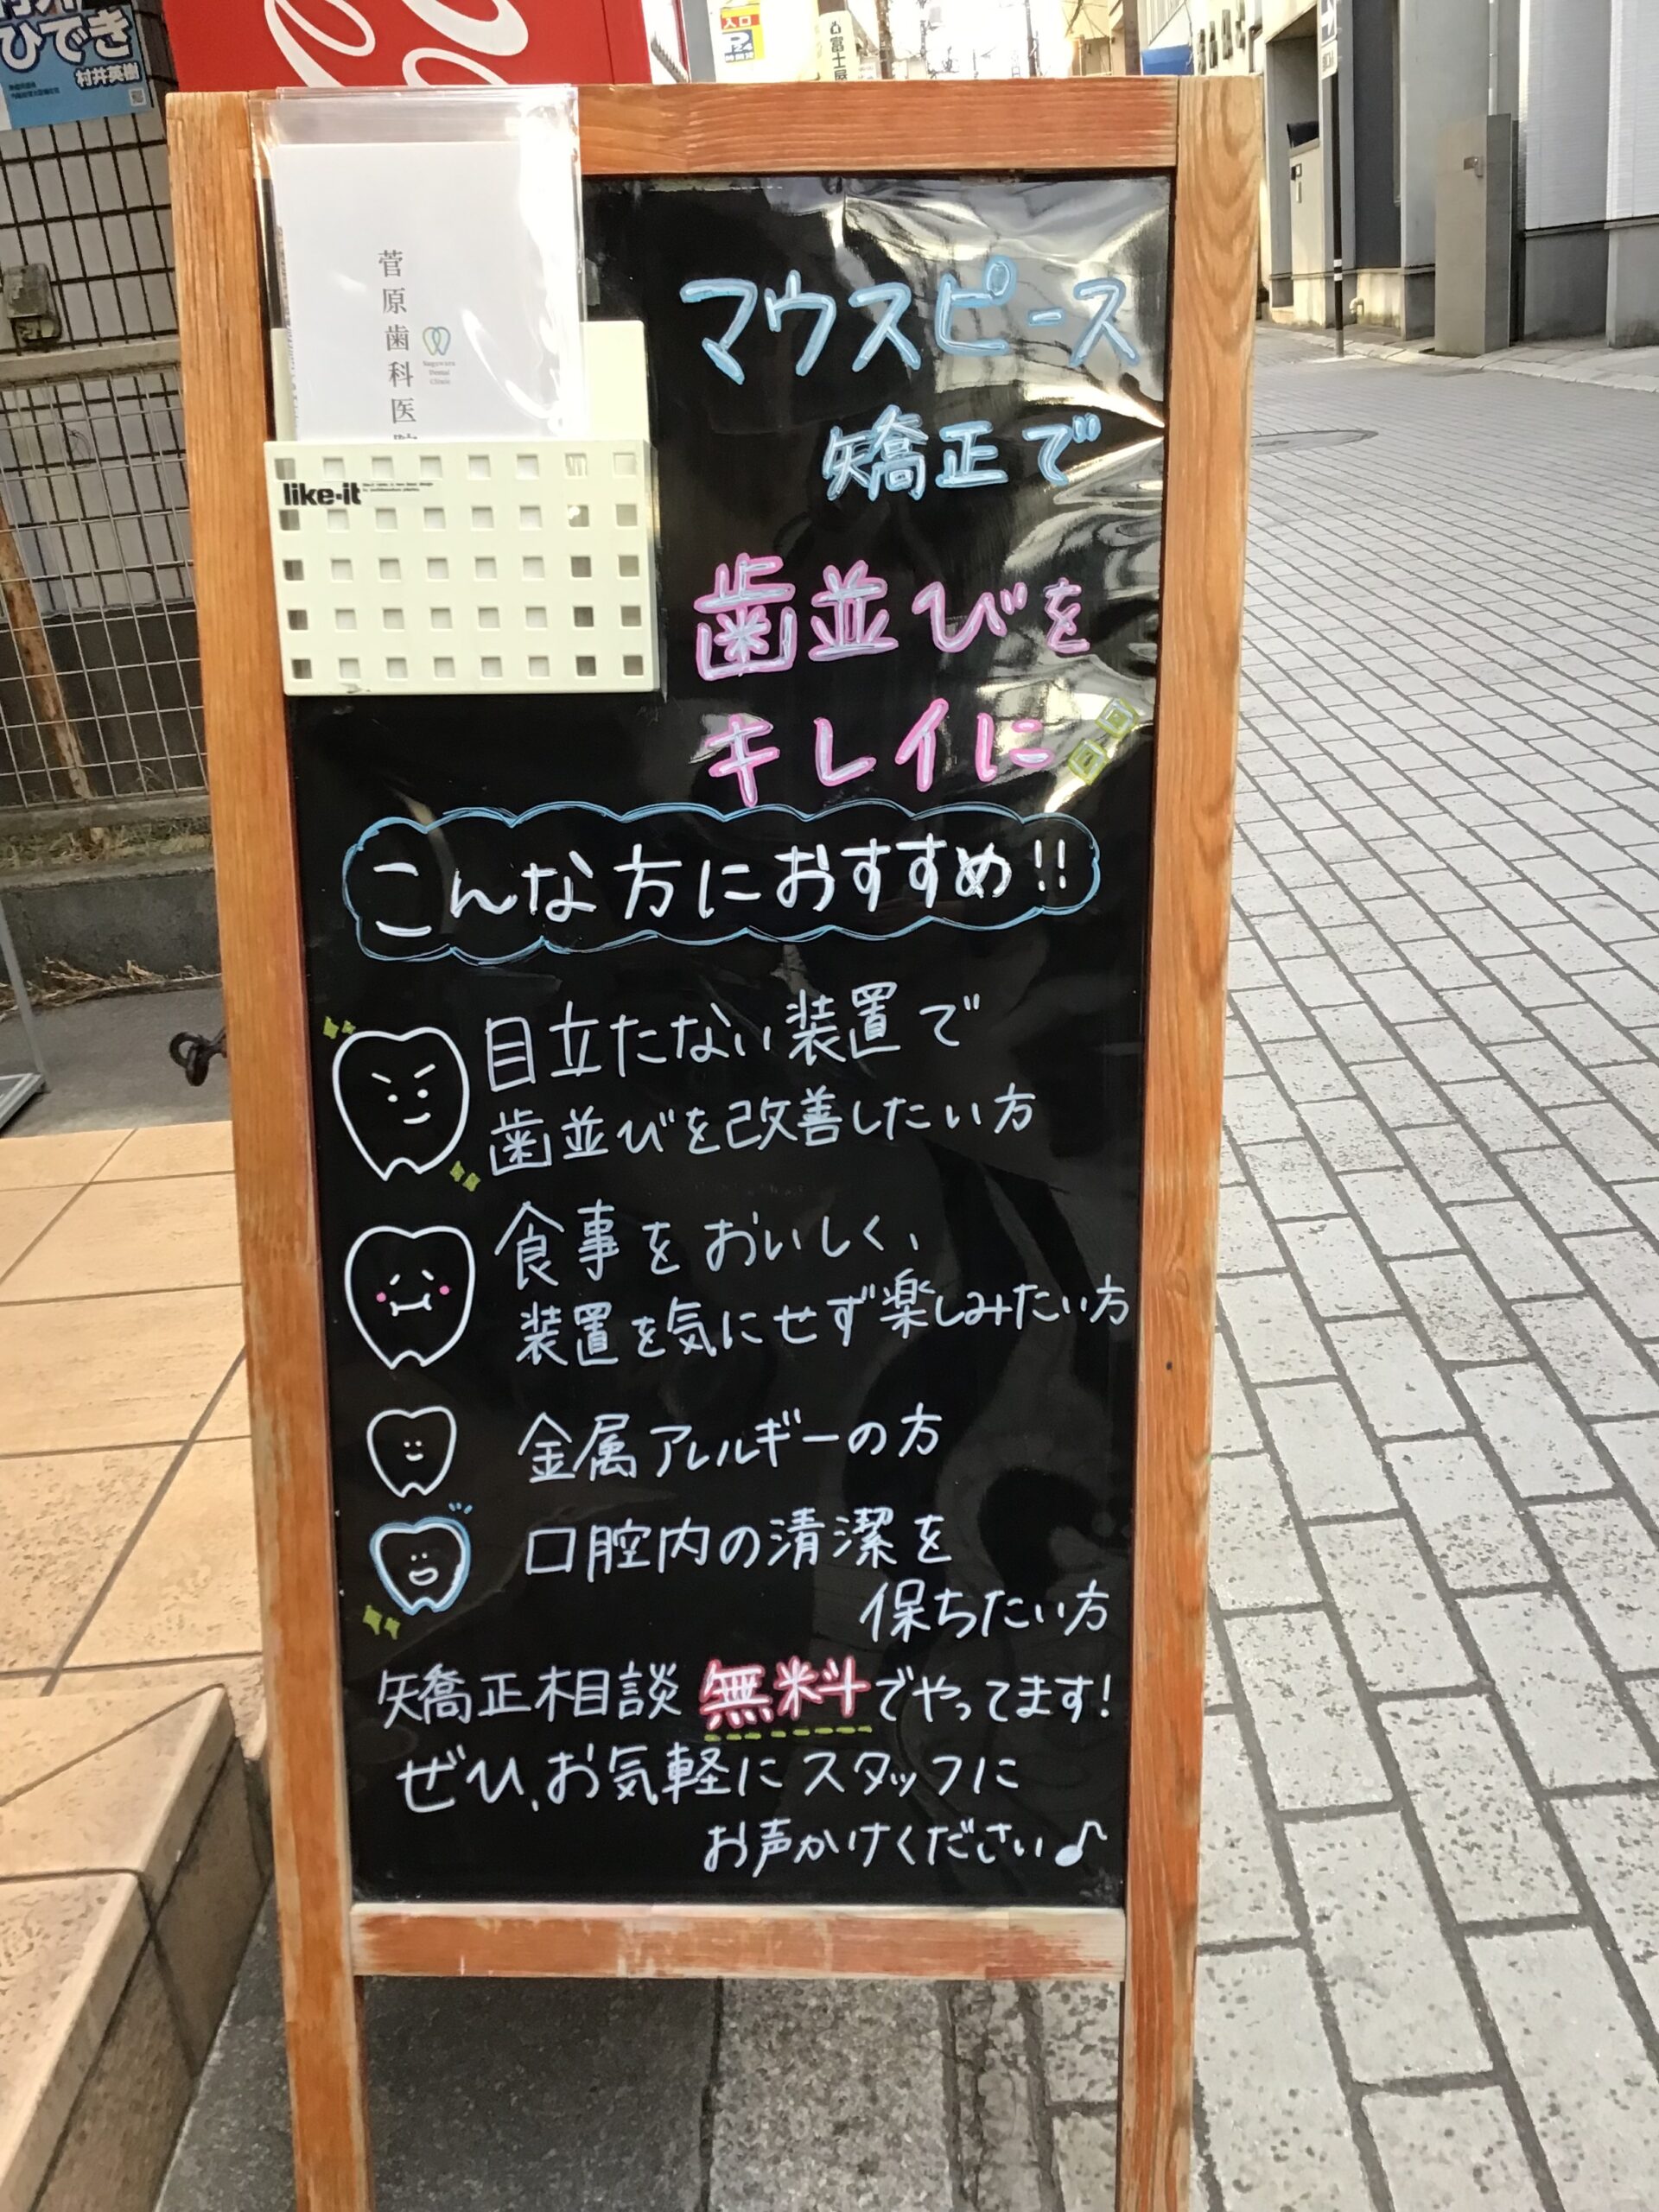 ひでき
村井英樹
入口
富士屋
菅原歯科医院
Sugawara
Dental
Clinic
like-it
マウスピース
矯正で
歯並びを
キレイに
こんな方におすすめ!!
目立たない装置で
歯並びを改善したい方
食事をおいしく、
装置を気にせず楽しみたい方
金属アレルギーの方
口腔内の清潔を
保ちたい方
矯正相談 無料でやってます!
ぜひ、お気軽にスタッフに
お声かけください♪